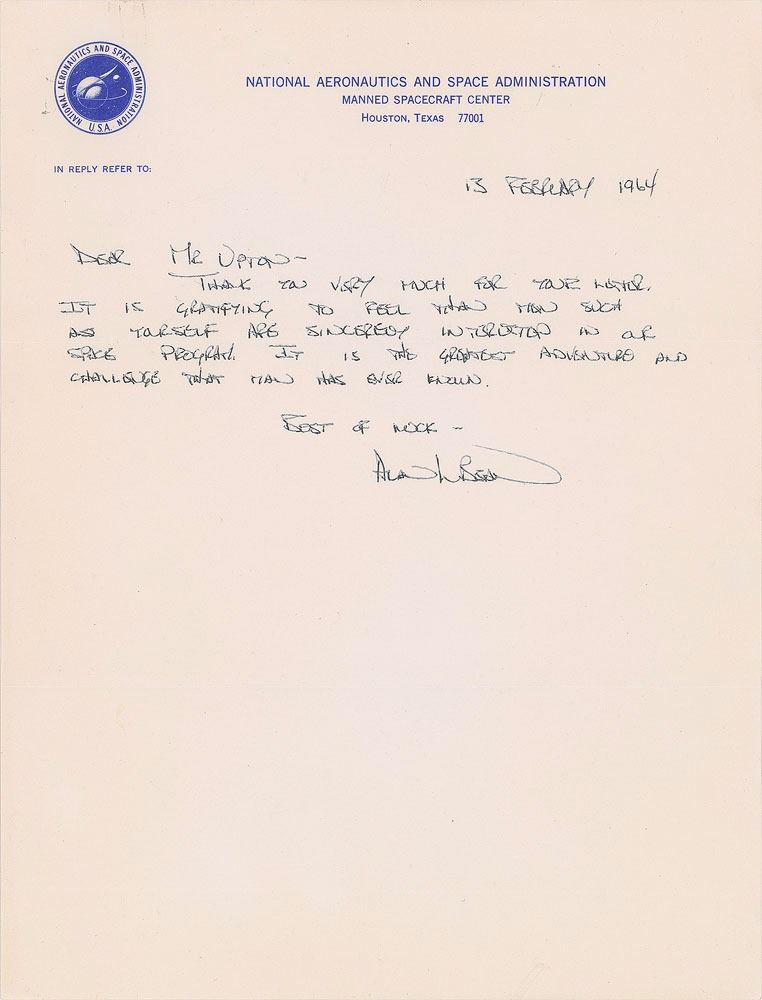 NATIONAL AERONAUTICS AND SPACE ADMINISTRATION
U.S.A.
NATIONAL AERONAUTICS AND SPACE ADMINISTRATION
MANNED SPACECRAFT CENTER
HOUSTON, TEXAS 77001
IN REPLY REFER TO:
13 FEBRUARY 1964
DEAR MR UPTON-
THANK YOU VERY MUCH FOR YOUR LETTER.
IT IS GRATIFYING TO FEEL THAT MEN SUCH
AS YOURSELF ARE SINCERELY INTERESTED IN OUR
SPACE PROGRAM. IT IS THE GREATEST ADVENTURE AND
CHALLENGE THAT MAN HAS EVER KNOWN.
BEST OF LUCK -
ALAN L BEAN